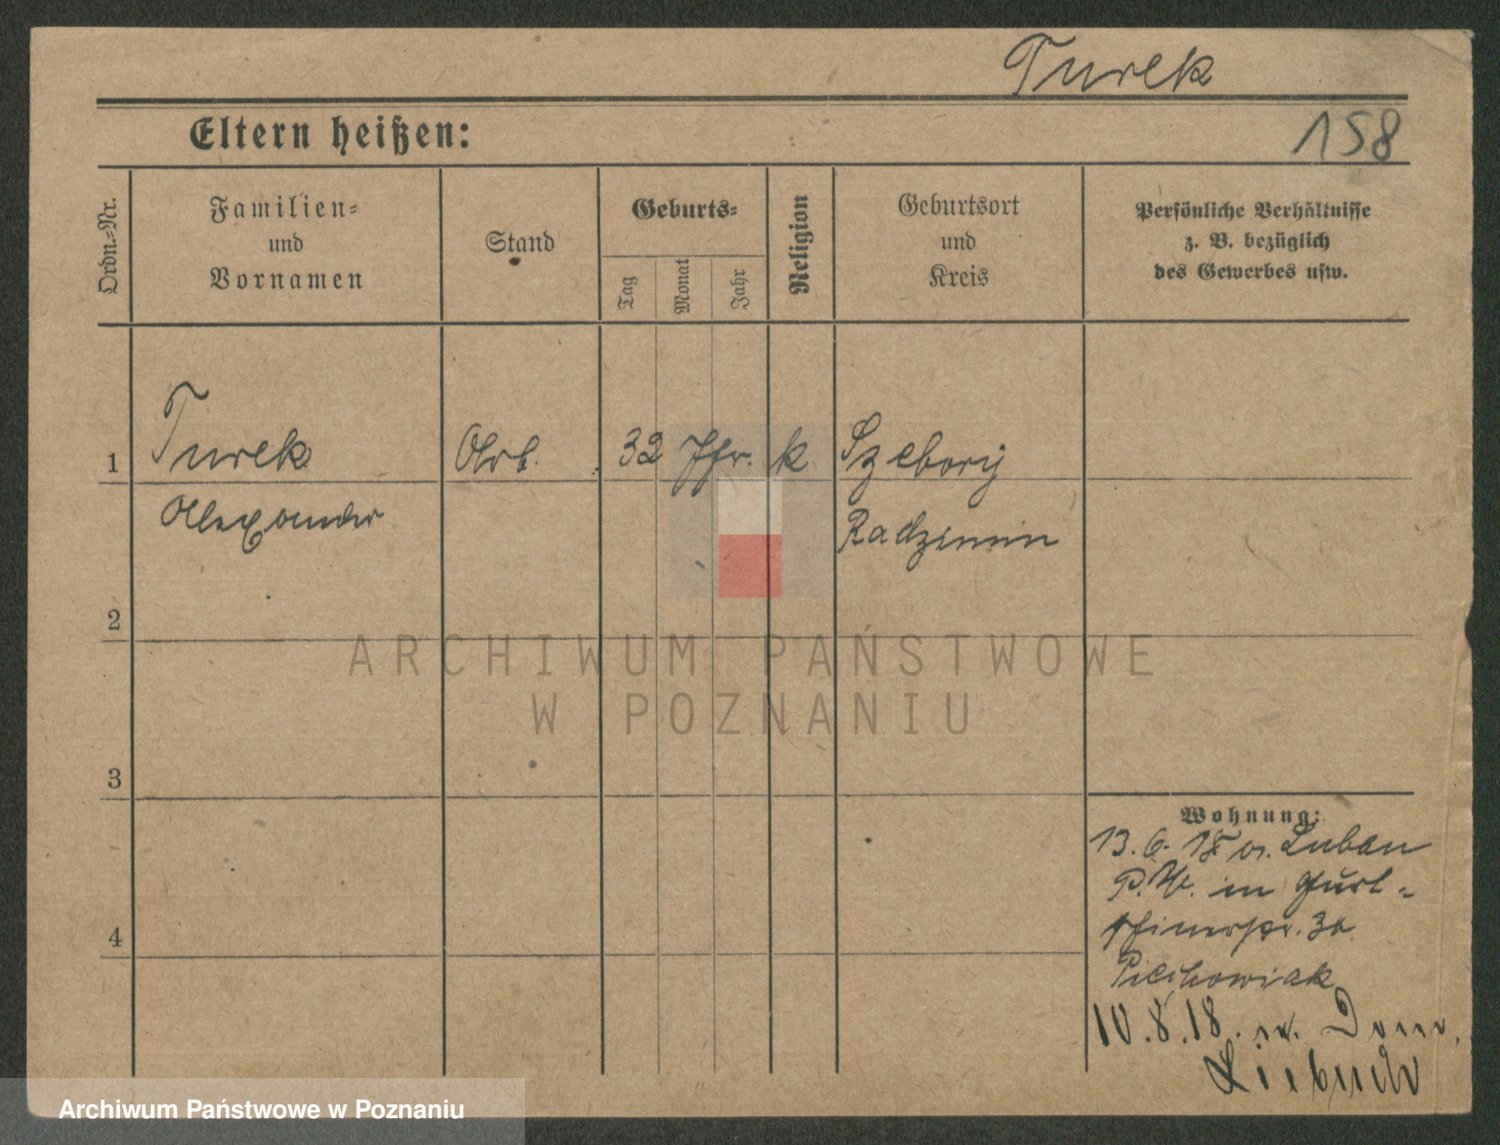 Turek
158
Eltern heißen:
Ordn.-Nr.
Familien-
und
Vornamen
Stand
Geburts-
Tag
Monat
Jahr
Religion
Geburtsort
und
Kreis
Persönliche Verhältnisse
z. B. bezüglich
des Gewerbes usw.
1 Turek Arb. 32 Jhr. k Szebory
Alexander Radzimin
2
3
4
ARCHIWUM PAŃSTWOWE
W POZNANIU
Wohnung:
13. 6. 18 Luban
P. W. in
30
Piechowiak
10. 8. 18. Dom.
Archiwum Państwowe w Poznaniu